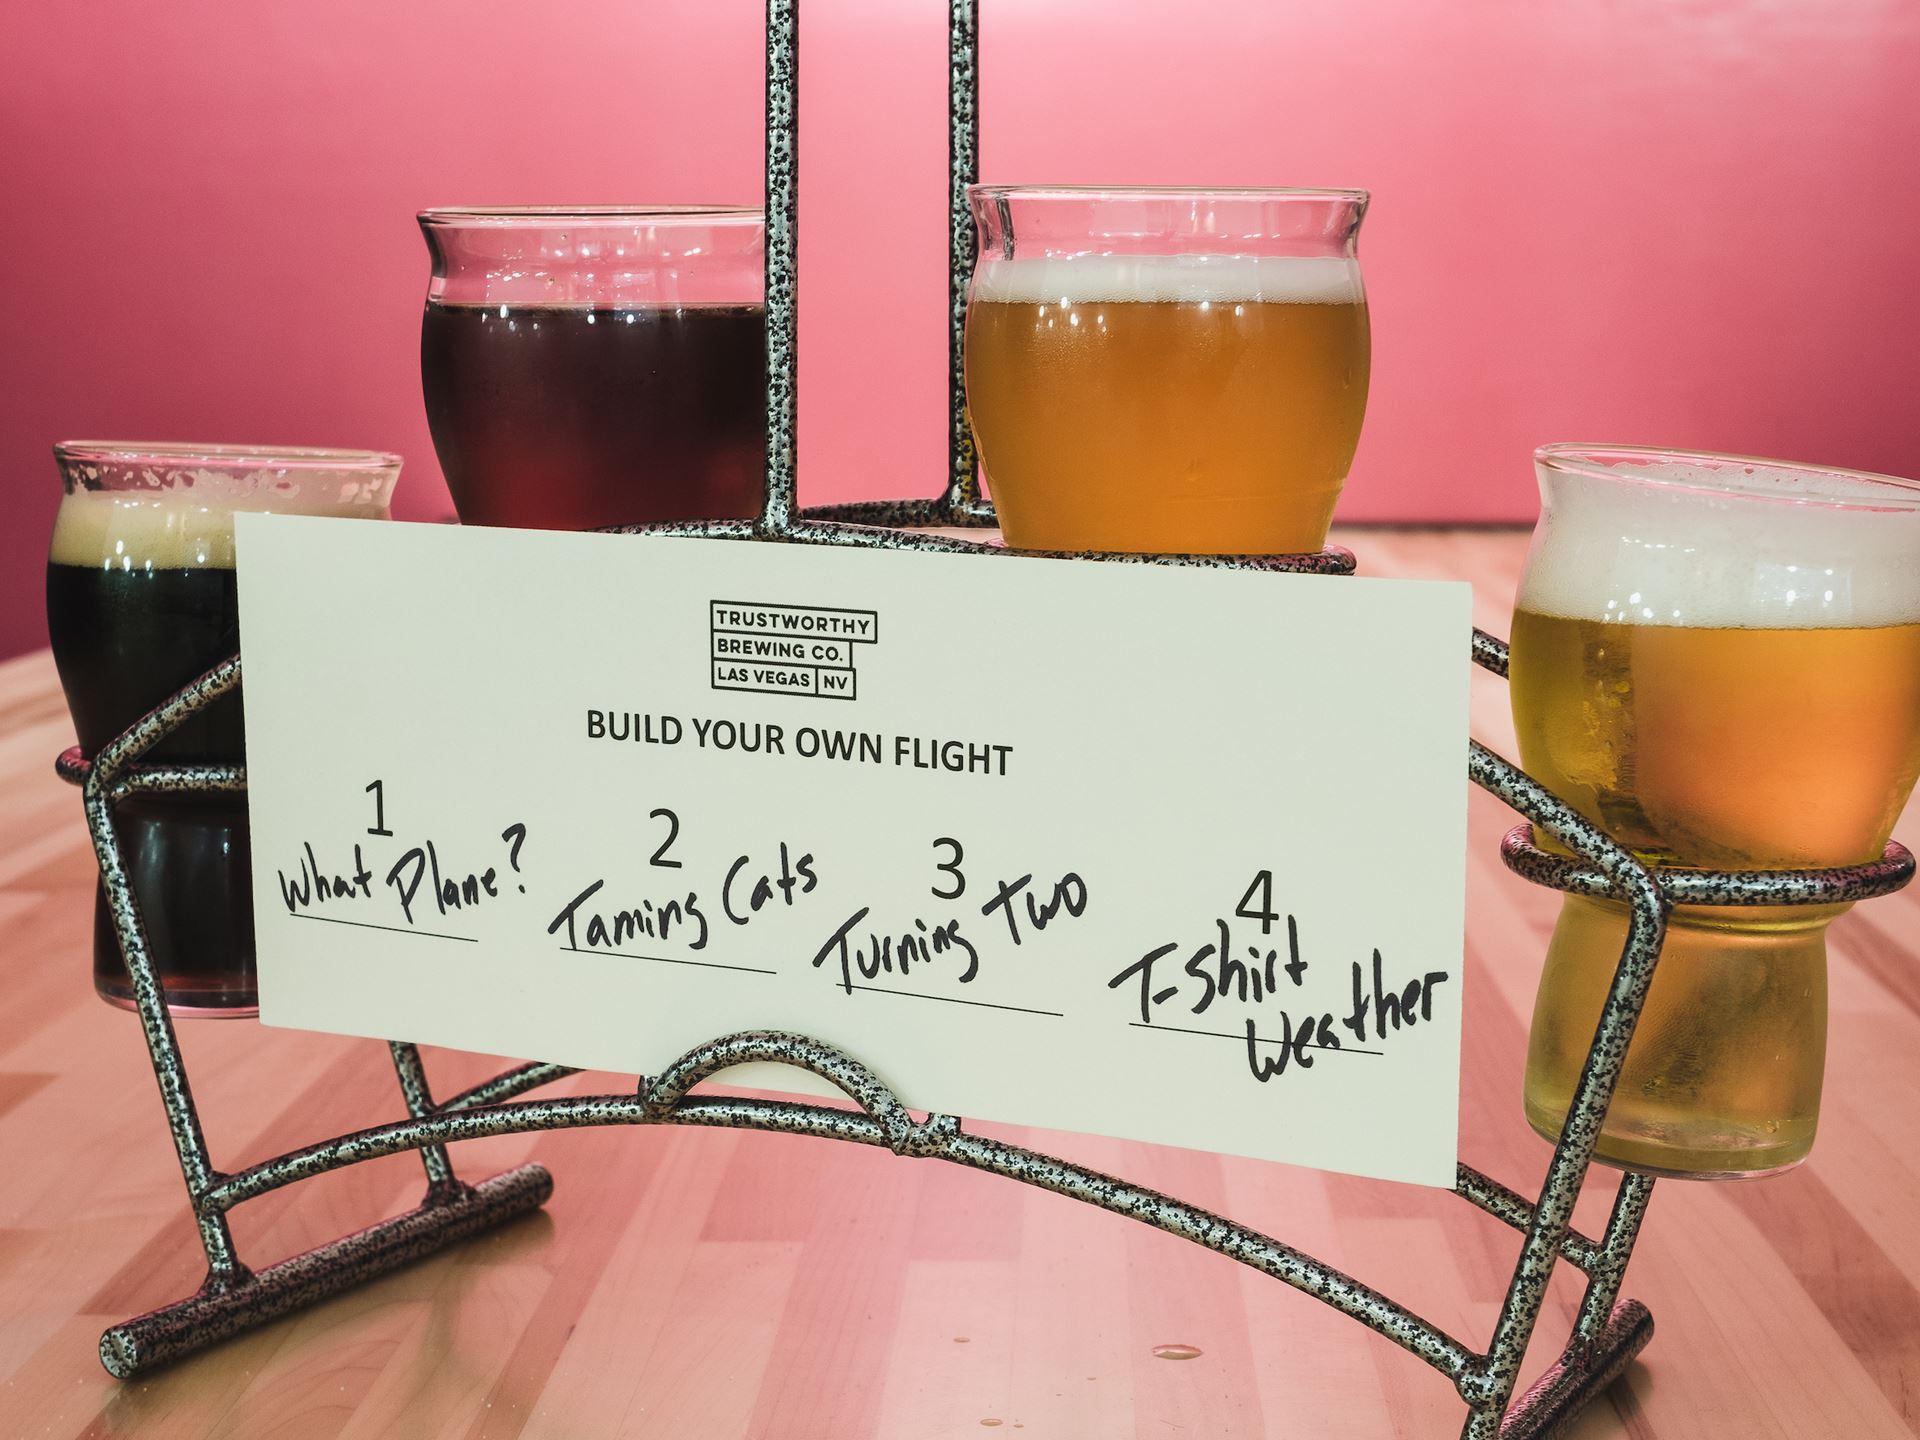 TRUSTWORTHY
BREWING CO.
LAS VEGAS NV
BUILD YOUR OWN FLIGHT
1
What Plane?
2
Taming Cats
3
Turning Two
4
T-Shirt
Weather